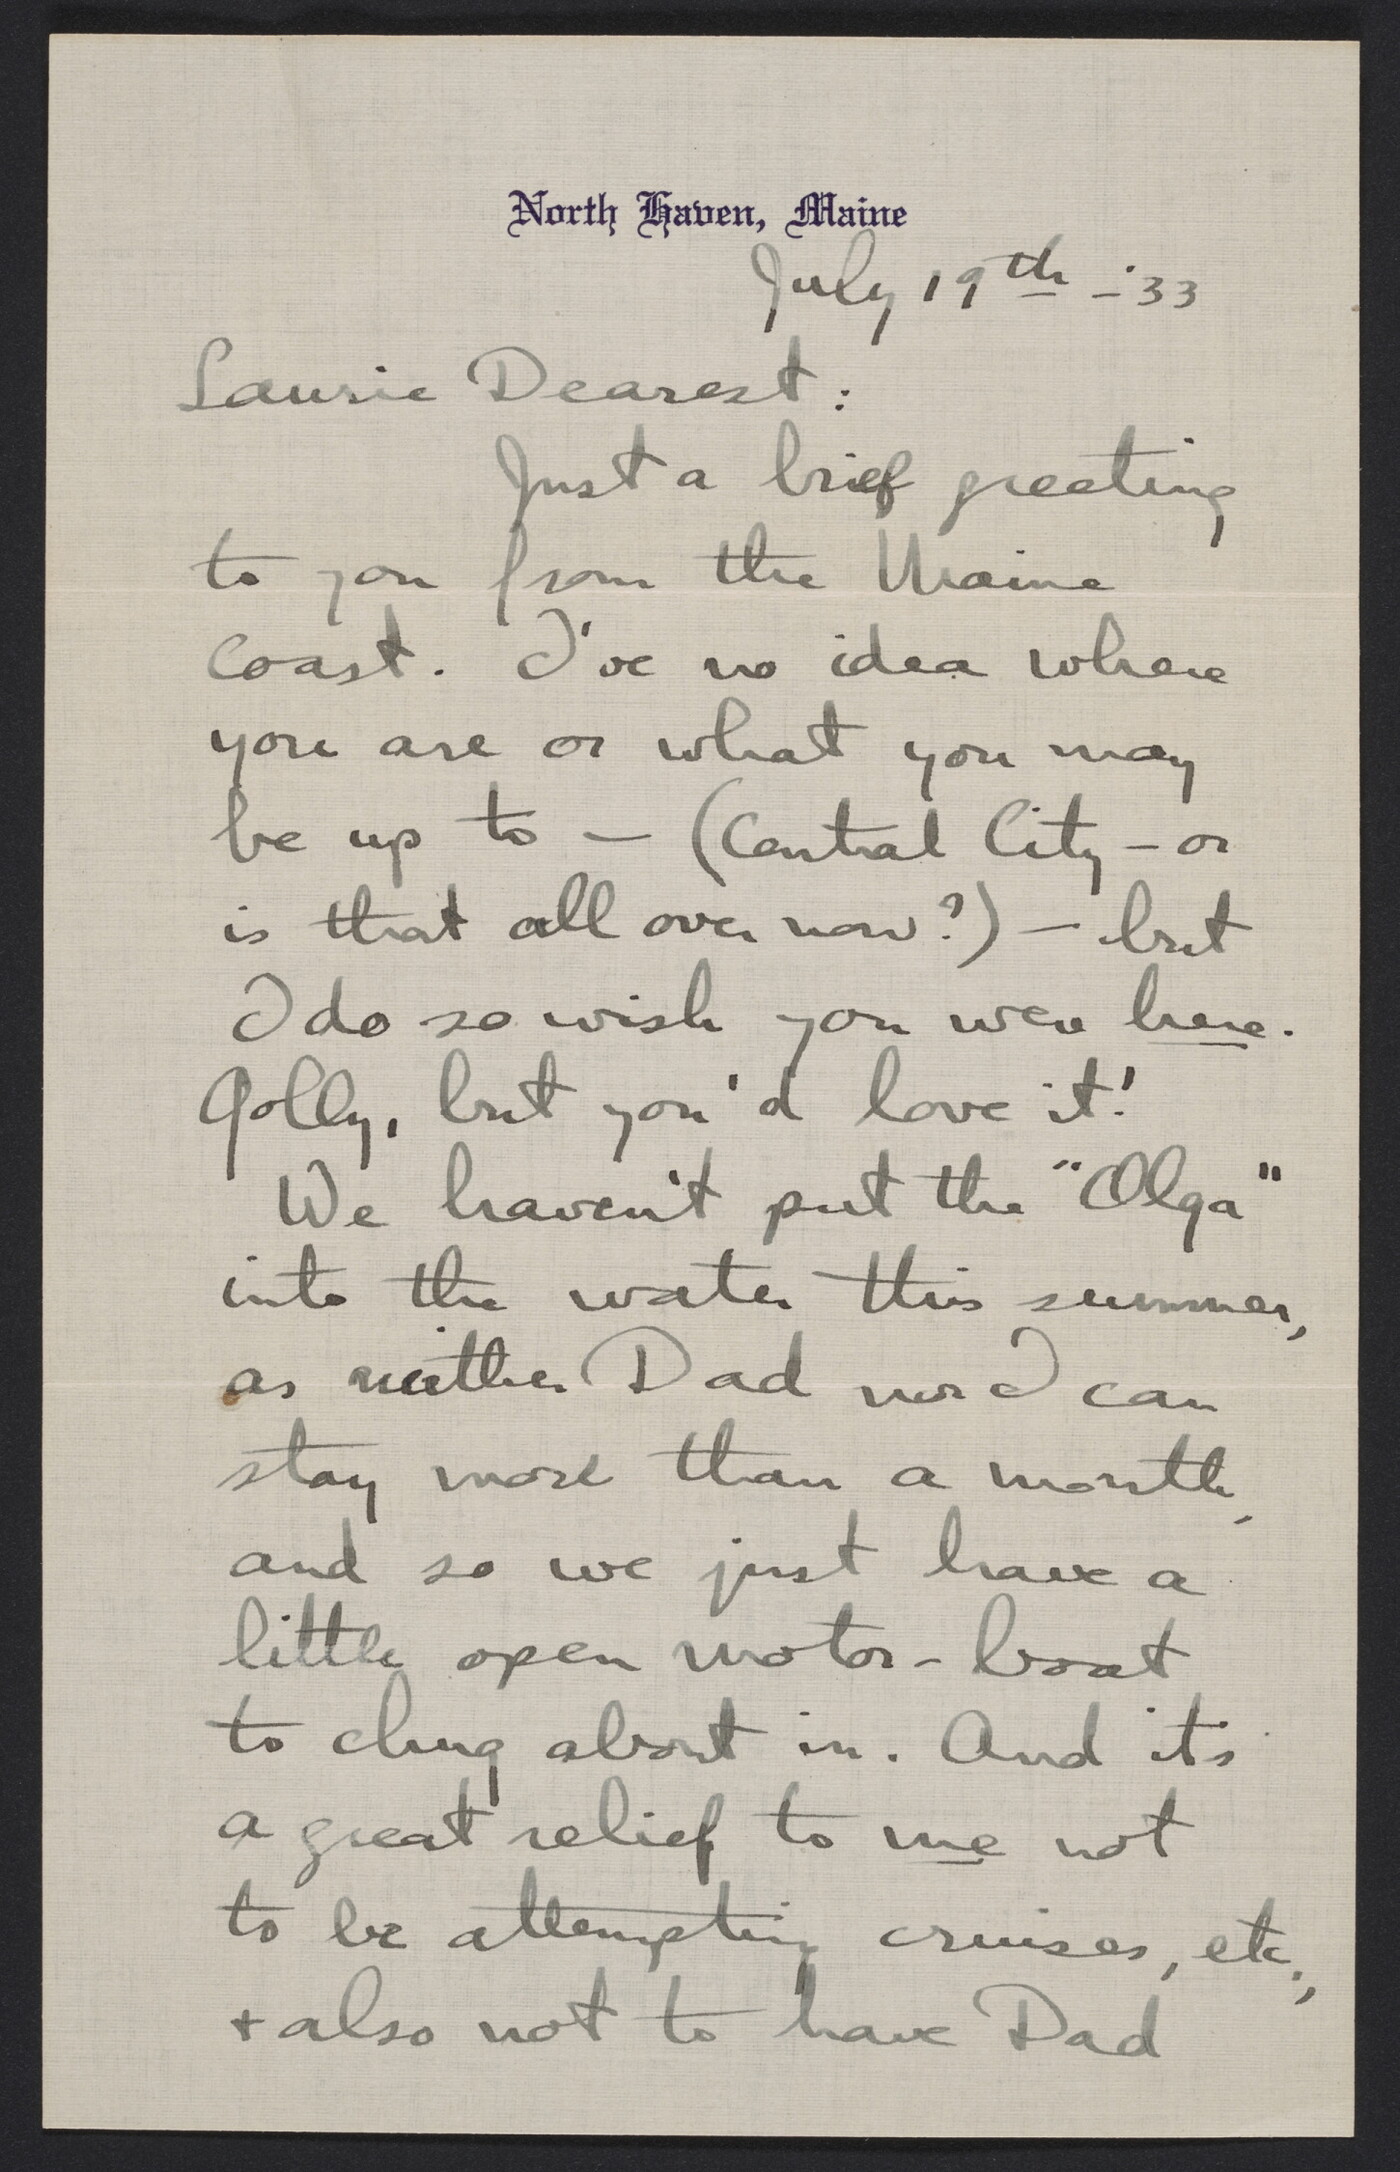 North Haven, Maine
July 19th - '33
Laurie Dearest:
Just a brief greeting
to you from the Maine
Coast. I've no idea where
you are or what you may
be up to — (Central City - or
is that all over now?) — but
I do so wish you were here.
Golly, but you'd love it!
We haven't put the "Olga"
into the water this summer,
as neither Dad nor I can
stay more than a month,
and so we just have a
little open motor-boat
to chug about in. And it's
a great relief to me not
to be attempting cruises, etc.,
+ also not to have Dad